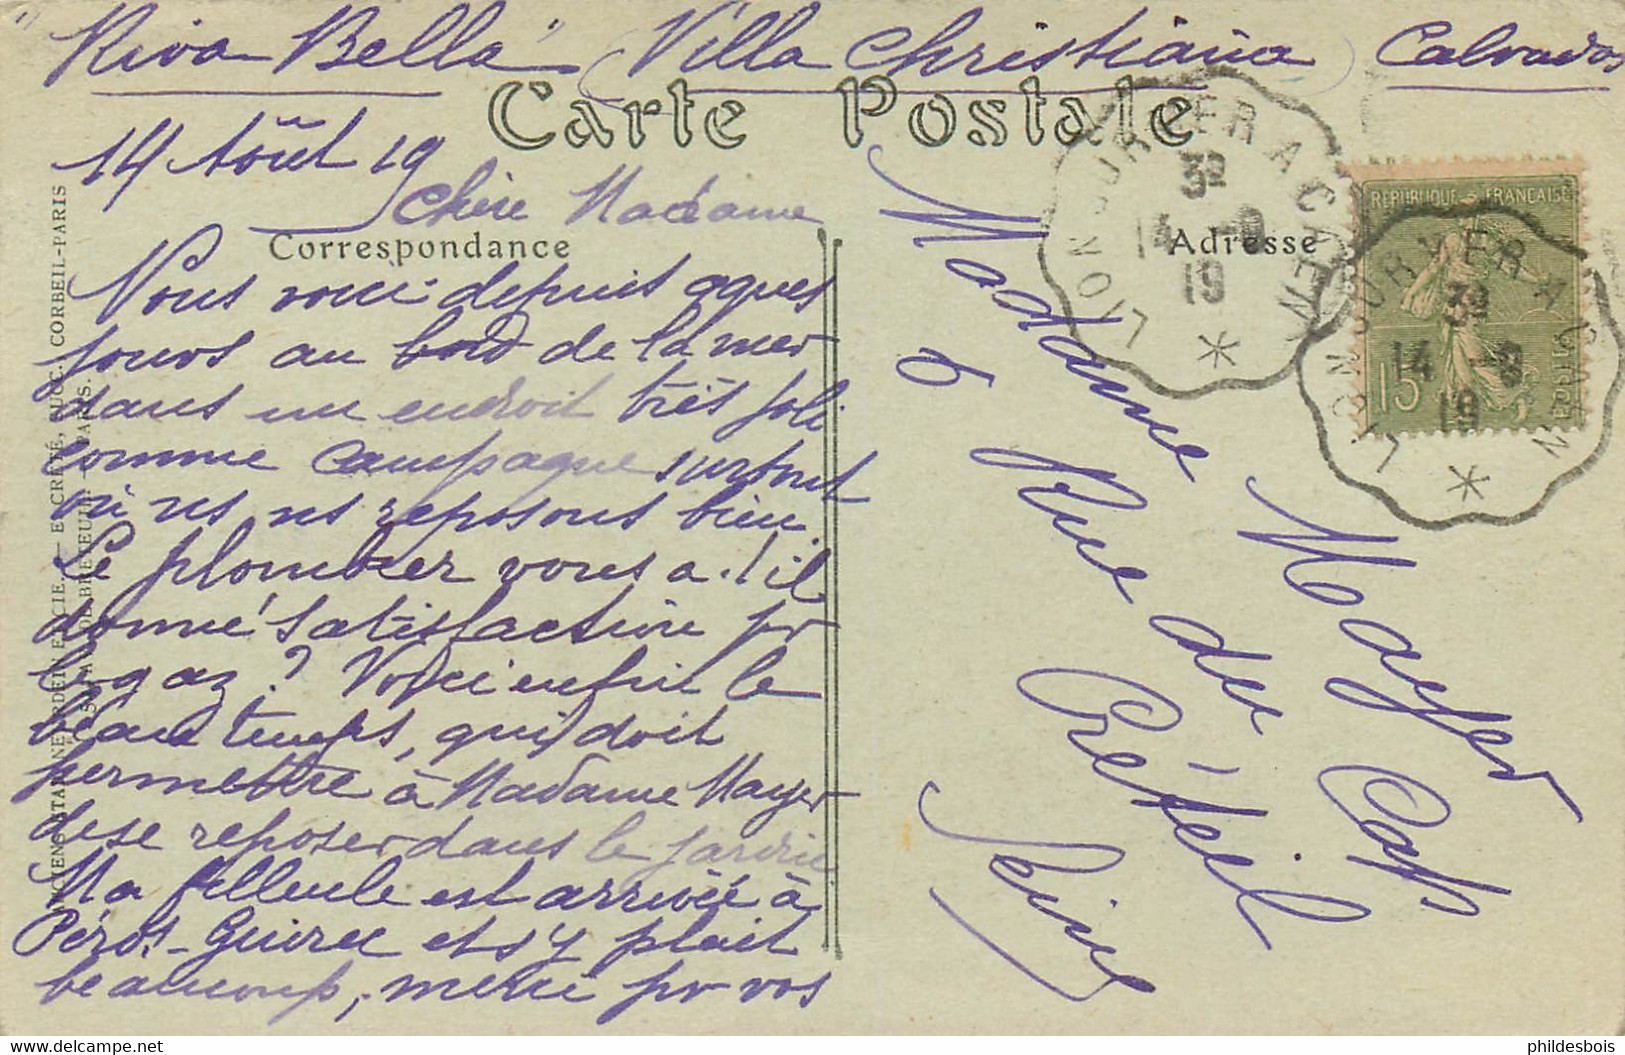 "Riva-Bella" Villa Christiana Calvados
Carte Postale
14 Août 19
Chère Madame
Correspondance
Nous voici depuis qques
jours au bord de la mer
dans un endroit très joli
comme campagne surtout
où ns ns reposons bien
Le plombier vous a-t'il
donné satisfaction pr
le gaz? Voici enfin le
beau temps, qui doit
permettre à Madame Mayer
de se reposer dans le jardin
Ma filleule est arrivée à
Péros-Guirec et s'y plait
beaucoup, merci pr vos
Adresse
Madame Mayer
6 Rue du Cap
Créteil
Seine
REPUBLIQUE FRANÇAISE
15
LION-SUR-MER A CAEN
3º
14 -8
19
LION-SUR-MER A CAEN
3º
14 -8
19
ANCIENS ETAB. NEURDEIN ET CIE. — E. CRÉTÉ, SUCC. CORBEIL-PARIS
BRETEUIL. — PARIS.
phildesbois
www.delcampe.net